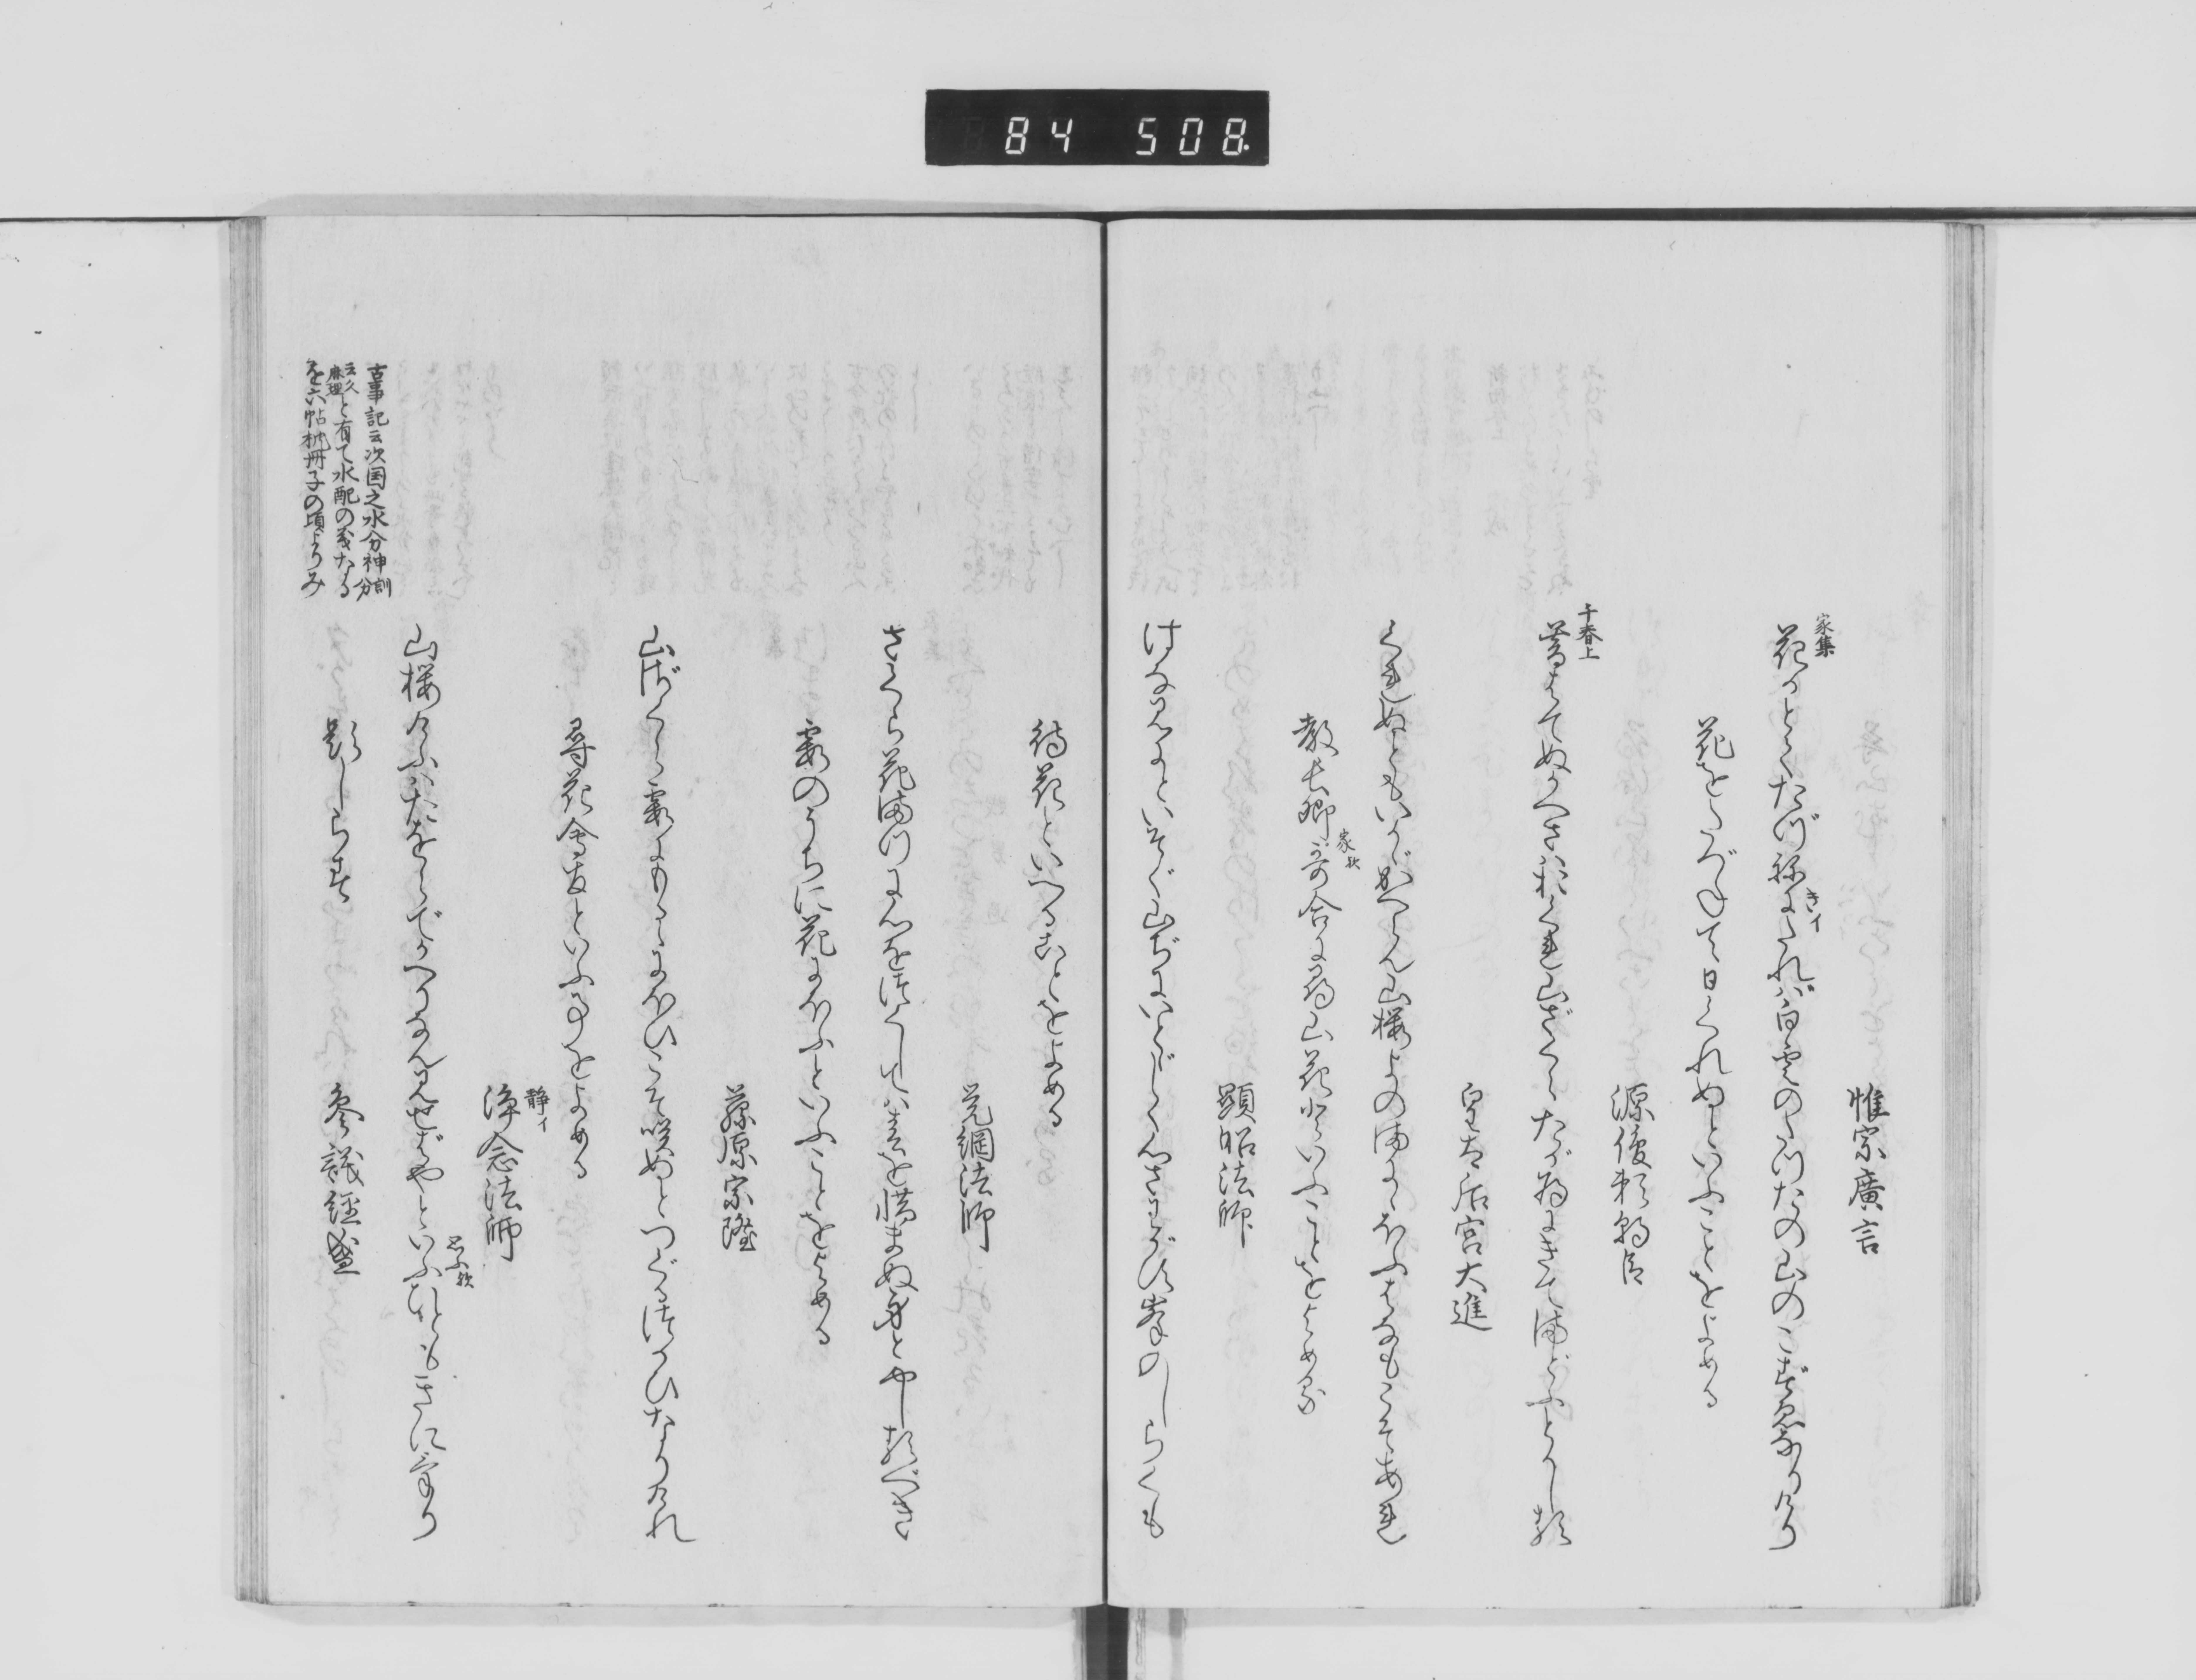 84 508
惟宗廣言
家集
花のとくたづねきイたれば白雲のたつたの山のこずゑなりけり
花をたづねて日くれぬといふことをよめる
源俊頼朝臣
千春上
暮はてぬかへさはおくれ山ざくらたが為にきてまどふとかしる
皇太后宮大進
くれぬともいかゞかへらん山櫻よのまにゝほふはなもこそあれ
教長卿哥合に尋山花といふことをよめる
家歟
顕昭法師
けふみよといそぐ山ぢにいとゞしく心さわがす峯のしらくも
待花といへることをよめる
覚綱法師
さくら花まつに心をつくしては春を惜まぬ身とやしるべき
霞のうちに花にほふといふことをよめる
藤原宗隆
山ざくら霞にもるゝにほひこそ咲ぬとつぐるつかひなりけれ
尋花會友といふ事をよめる
浄念法師
静イ
山櫻けふはたをらでかへりなん見せばやといふひともきにけり
思ふ歟
題しらず
参議経盛
古事記云次国之水分神訓分
云久麻理と有て水配の義なる
を六帖枕冊子の頃よりみ